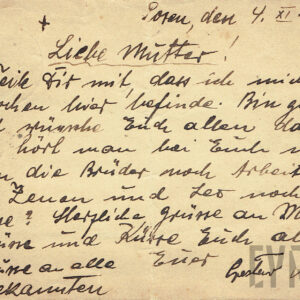 Posen, den 4. XI.
Liebe Mutter!
eile Dir mit, dass ich mich
ochen hier befinde. Bin g
wünsche Euch allen da
hört man bei Euch n
n die Brüder noch Arbeit
Zenon und Leo noch
e? Herzliche grüsse an M
üsse und Küsse Euch al
üsse an alle Euer
ekannten